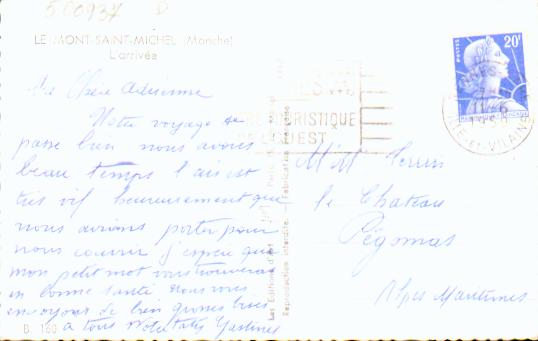 5C0937 D
LE MONT-SAINT-MICHEL (Manche)
L'arrivée
Ma Chère Adrienne
Notre voyage se
passe bien nous avons
beau temps l'air est
très vif heureusement que
nous avions porter pour
nous couvrir j'espère que
mon petit mot vous trouveras
en bonne santé nous vous
envoyons de bien grosses bises
à tous
B. 180
Les Editions d'Art
Reproduction interdite. Fabrication française
POSTES 20F
TOURISTIQUE
DE L'OUEST
ILLE-ET-VILAINE
M. Mme
le Chateau
Pégomas
Alpes Maritimes